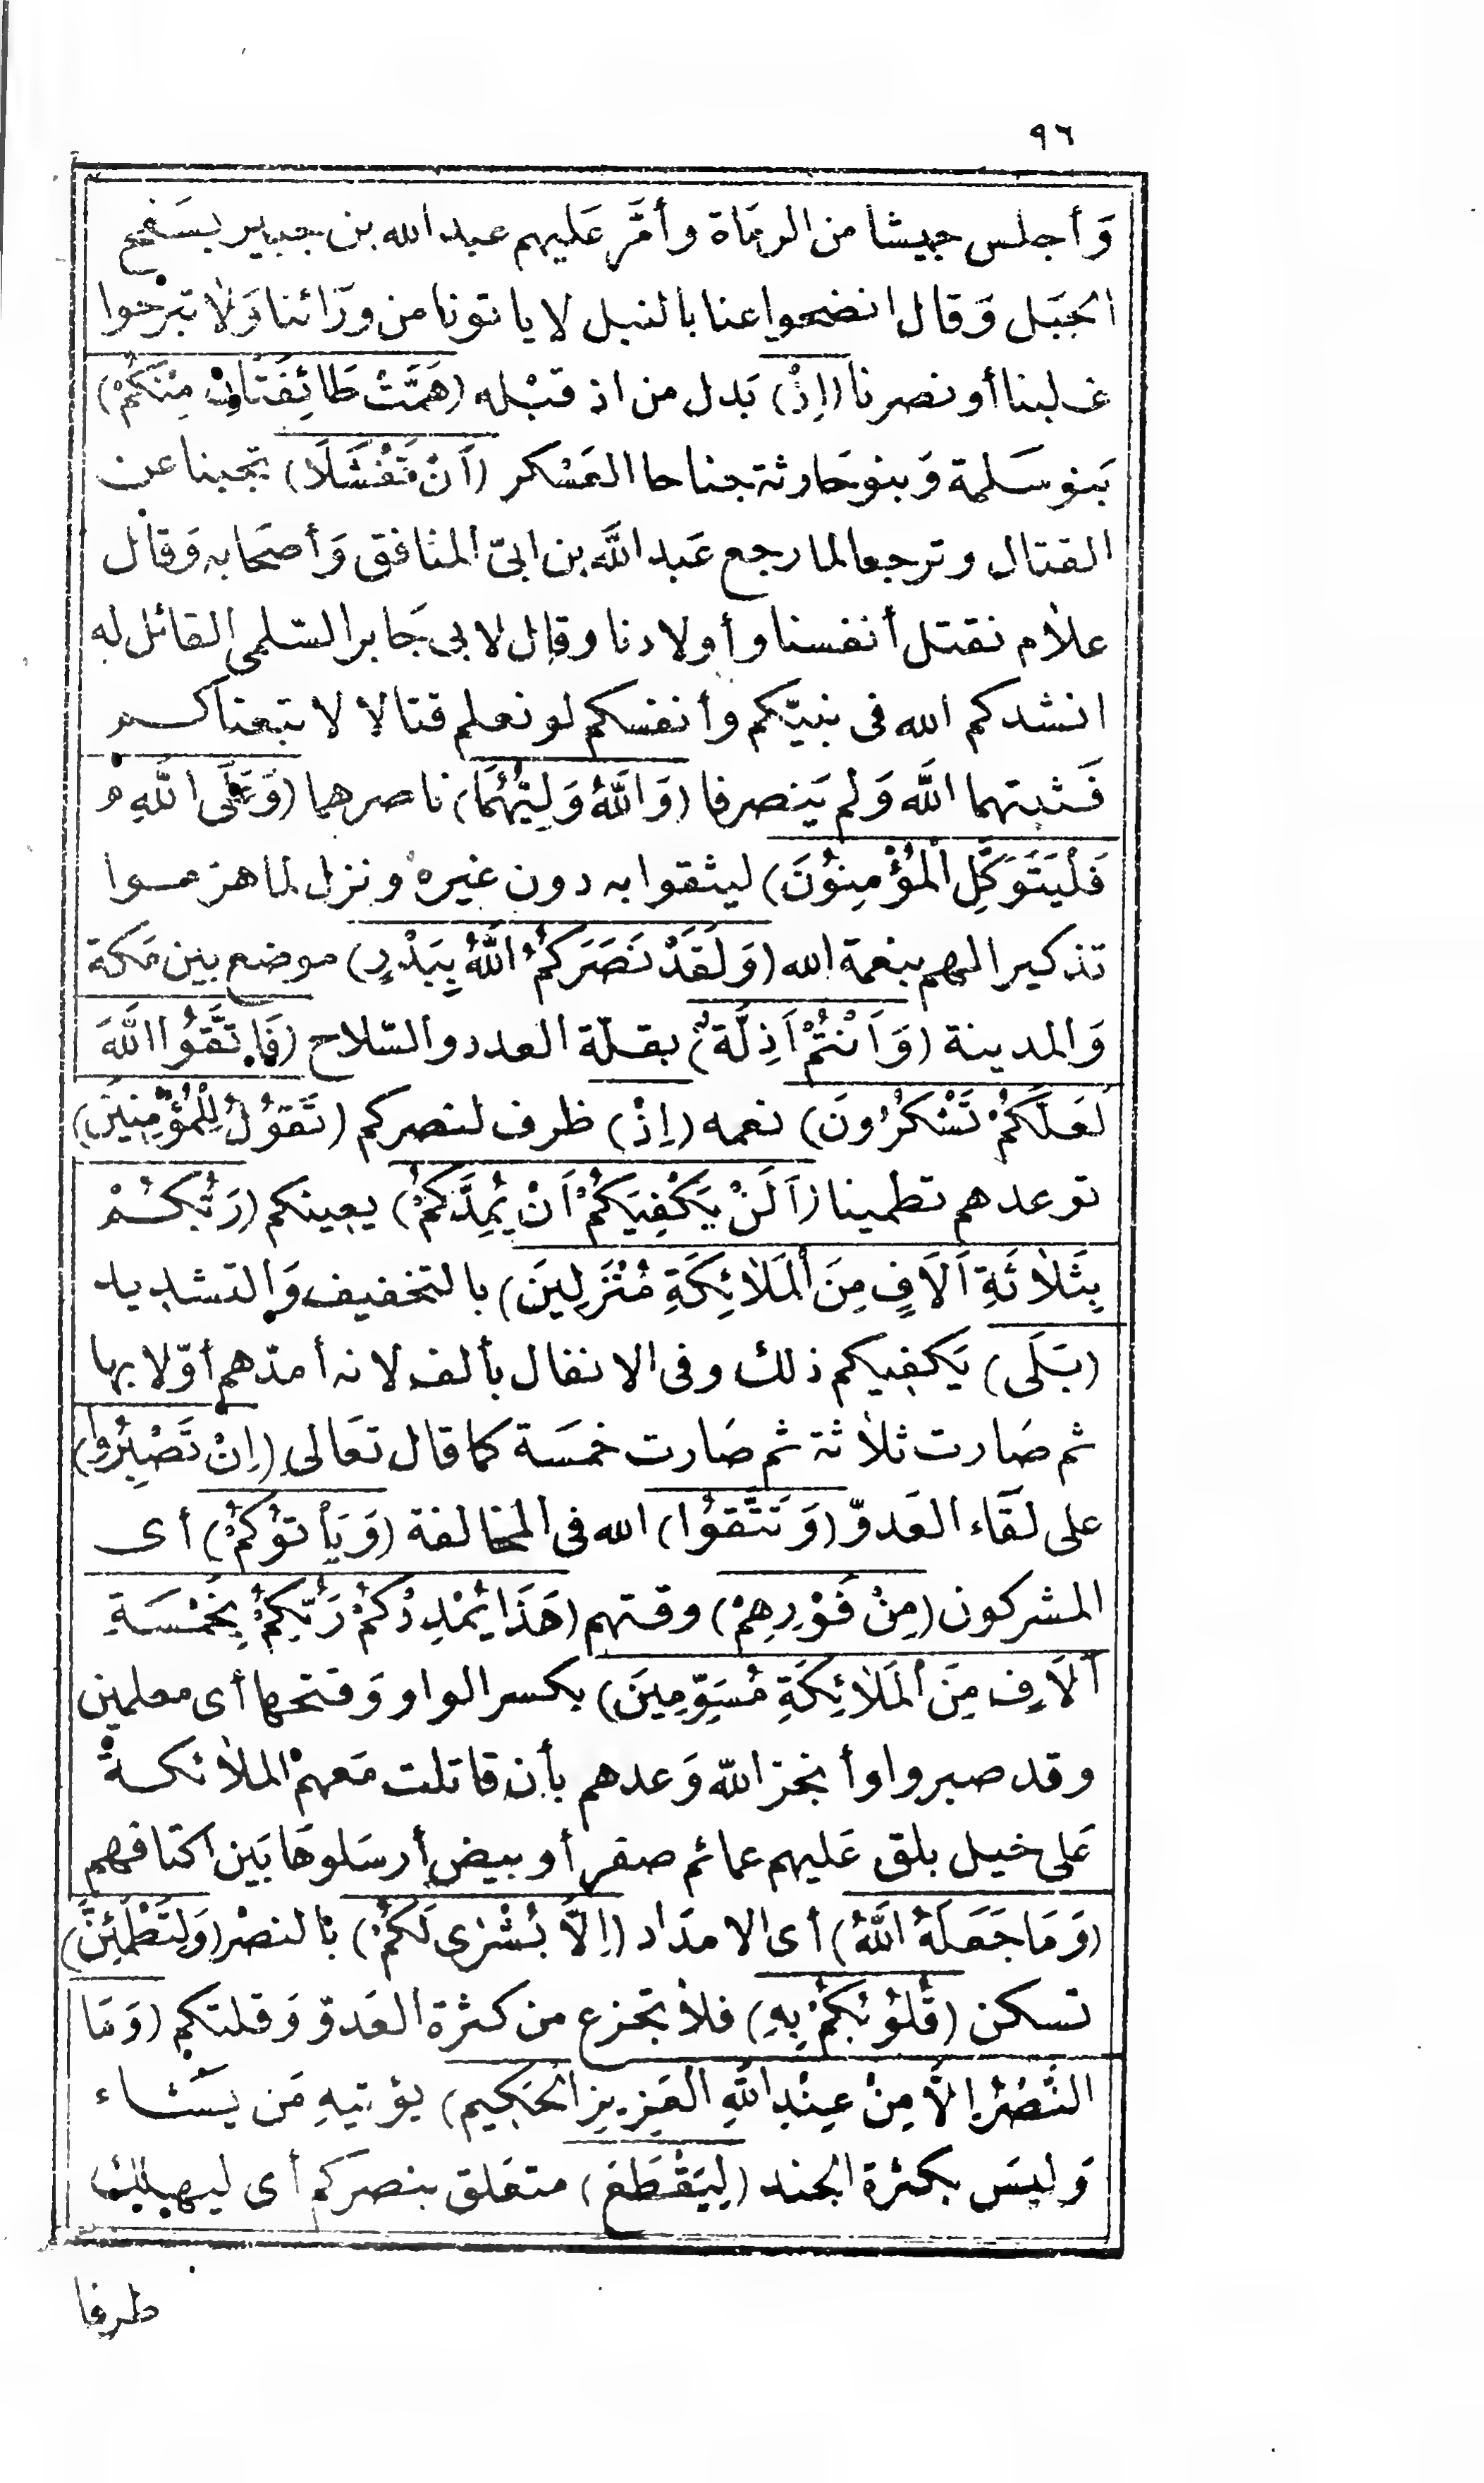 ٩٦
وَأجلس جيشا من الرمَاة وأمَّر عَليهم عبد الله بن جبير بسَفح
الجبَل وَقال انضحوا عنا بالنبل لا ياتونا من ورَائنا وَلا تبرحوا
غلبنا أو نصرنا (اِذْ) بَدل من اذ قبْله (هَمَّتْ طَائِفَتَانِ مِنْكُمْ)
بَنو سَلمة وَبنو حَارثة جناحا العَسْكر (اَنْ تَفْشَلَا) تجبنا عن
القتال وترجعا لما رجع عَبد اللَّه بن ابىّ المنافق وَأصحَابه وَقال
علام نقتل أنفسنا وأولادنا وقال لابى جَابر السّلمى القائل له
انشدكم الله فى نبيّكم وأنفسكم لو نعلم قتالا لا تبعناكم
فَثبتهما اللَّه وَلم يَنصرفا (وَاللَّهُ وَلِيُّهُمَا) ناصرهما (وَعَلَى اللَّهِ
فَلْيَتَوَكَّلِ الْمُؤْمِنُوْنَ) ليثقوا به دون غيره ونزل لما هزموا
تذكيرا لهم بنعمة الله (وَلَقَدْ نَصَرَكُمُ اللَّهُ بِبَدْرٍ) موضع بين مَكة
وَالمدينة (وَاَنْتُمْ اَذِلَّةٌ) بقلّة العدد والسّلاح (فَاتَّقُوا اللَّهَ
لَعَلَّكُمْ تَشْكُرُونَ) نعمه (اِذْ) ظرف لنصركم (تَقُوْلُ لِلْمُؤْمِنِيْنَ)
توعدهم تطمينا (اَلَنْ يَكْفِيَكُمْ اَنْ يُمِدَّكُمْ) يعينكم (رَبُّكُمْ
بِثَلَاثَةِ اَلَافٍ مِنَ الْمَلَائِكَةِ مُنْزَلِينَ) بالتخفيف وَالتشديد
(بَلَى) يَكفيكم ذلك وفى الانفال بألف لانه أمدّهم أوّلا بها
ثم صَارت ثلاثة ثم صَارت خمسَة كما قال تعَالى (اِنْ تَصْبِرُوا)
على لقَاء العَدوّ (وَتَتَّقُوْا) الله فى المخالفة (وَيَأْتُوْكُمْ) أى
المشركون (مِنْ فَوْرِهِمْ) وقتهم (هَذَا يُمْدِدْكُمْ رَبُّكُمْ بِخَمْسَةِ
اَلَافٍ مِنَ الْمَلَائِكَةِ مُسَوِّمِينَ) بكسر الواو وَفتحها أى معلمين
وقد صبروا وأنجز اللّه وَعدهم بأن قاتلت مَعهمْ الملائكة
عَلى خيل بلق عَليهم عمائم صفر أو بيض أرسَلوهَا بَين اكتافهم
(وَمَا جَعَلَهُ اللَّهُ) أى الامدَاد (اِلَّا بُشْرَى لَكُمْ) بالنصْر (وَلِتَطْمَئِنَّ)
تسكن (قُلُوْبُكُمْ بِهِ) فلا تجزع من كثرة العَدوّ وَقلتكم (وَمَا
النَّصْرُ اِلَّا مِنْ عِنْدِ اللَّهِ العَزِيزِ الْحَكِيمِ) يؤتيهِ مَن يشَاء
وَليسَ بكثرة الجند (لِيَقْطَعَ) متعَلق بنصركم أى ليهلك
طرفا